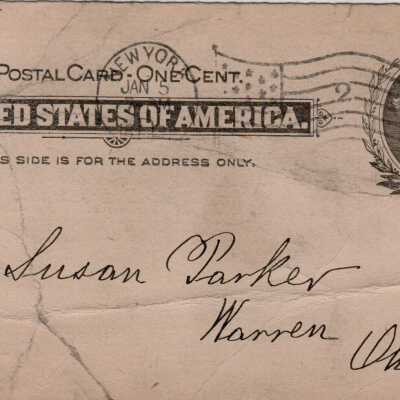 NEW YORK
JAN 5
2
POSTAL CARD - ONE CENT.
ED STATES OF AMERICA.
S SIDE IS FOR THE ADDRESS ONLY.
Susan Parker
Warren